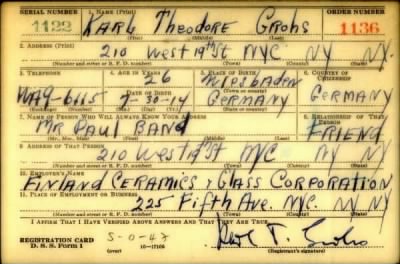 SERIAL NUMBER 1. NAME (Print) ORDER NUMBER
1122 KARL THEODORE GROHS 1136
(First) (Middle) (Last)
2. ADDRESS (Print)
210 West 19th St NYC NY NY.
(Number and street or R. F. D. number) (Town) (County) (State)
3. TELEPHONE 4. AGE IN YEARS 5. PLACE OF BIRTH 6. COUNTRY OF CITIZENSHIP
26 Wiesbaden
WA9-6115 DATE OF BIRTH (Town or county)
GERMANY GERMANY
(Exchange) (Number) (Mo.) (Day) (Yr.) (State or country)
7. NAME OF PERSON WHO WILL ALWAYS KNOW YOUR ADDRESS 8. RELATIONSHIP OF THAT PERSON
Mr. PAUL BAND FRIEND
(Mr., Mrs., Miss) (First) (Middle) (Last)
9. ADDRESS OF THAT PERSON
210 West 19th St NYC NY NY
(Number and street or R. F. D. number) (Town) (County) (State)
10. EMPLOYER'S NAME
FINLAND CERAMICS & GLASS CORPORATION
11. PLACE OF EMPLOYMENT OR BUSINESS
225 Fifth Ave. NYC. NY NY
(Number and street or R. F. D. number) (Town) (County) (State)
I AFFIRM THAT I HAVE VERIFIED ABOVE ANSWERS AND THAT THEY ARE TRUE.
REGISTRATION CARD
D. S. S. Form 1 16-17105 (Registrant's signature)